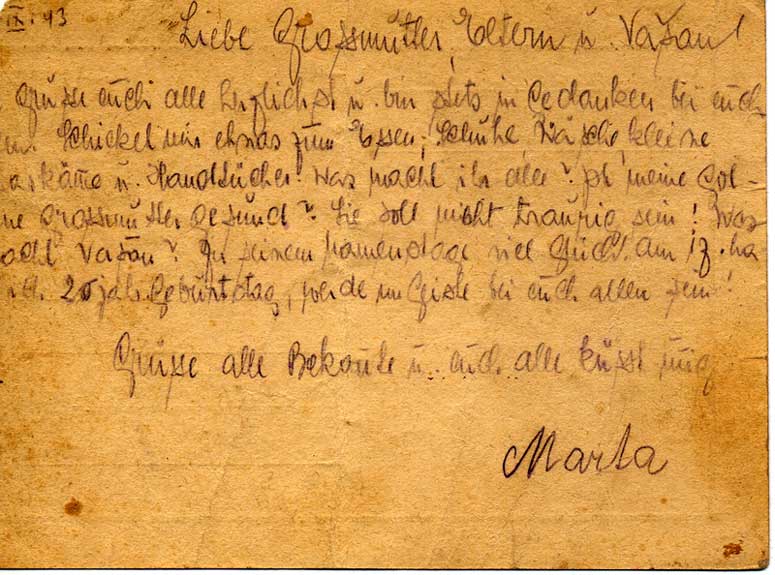 IX. 43
Liebe Grossmutter, Eltern u. Vašau!
Grüsse euch alle herzlichst u. bin stets in Gedanken bei euch
Schicket mir etwas zum Essen, Schuhe, Wäsche, kleine
kämme u. Handtücher. Was macht ihr alle? Ist meine Gol-
ne Grossmutter gesund? Sie soll nicht traurig sein! Was
acht Vašau? Zu seinem Namenstage viel Glück! Am 17. ha
20 jäh. Geburtstag, werde im Geiste bei euch allen sein!
Grüsse alle Bekannte u. euch alle küsst innig
Marta